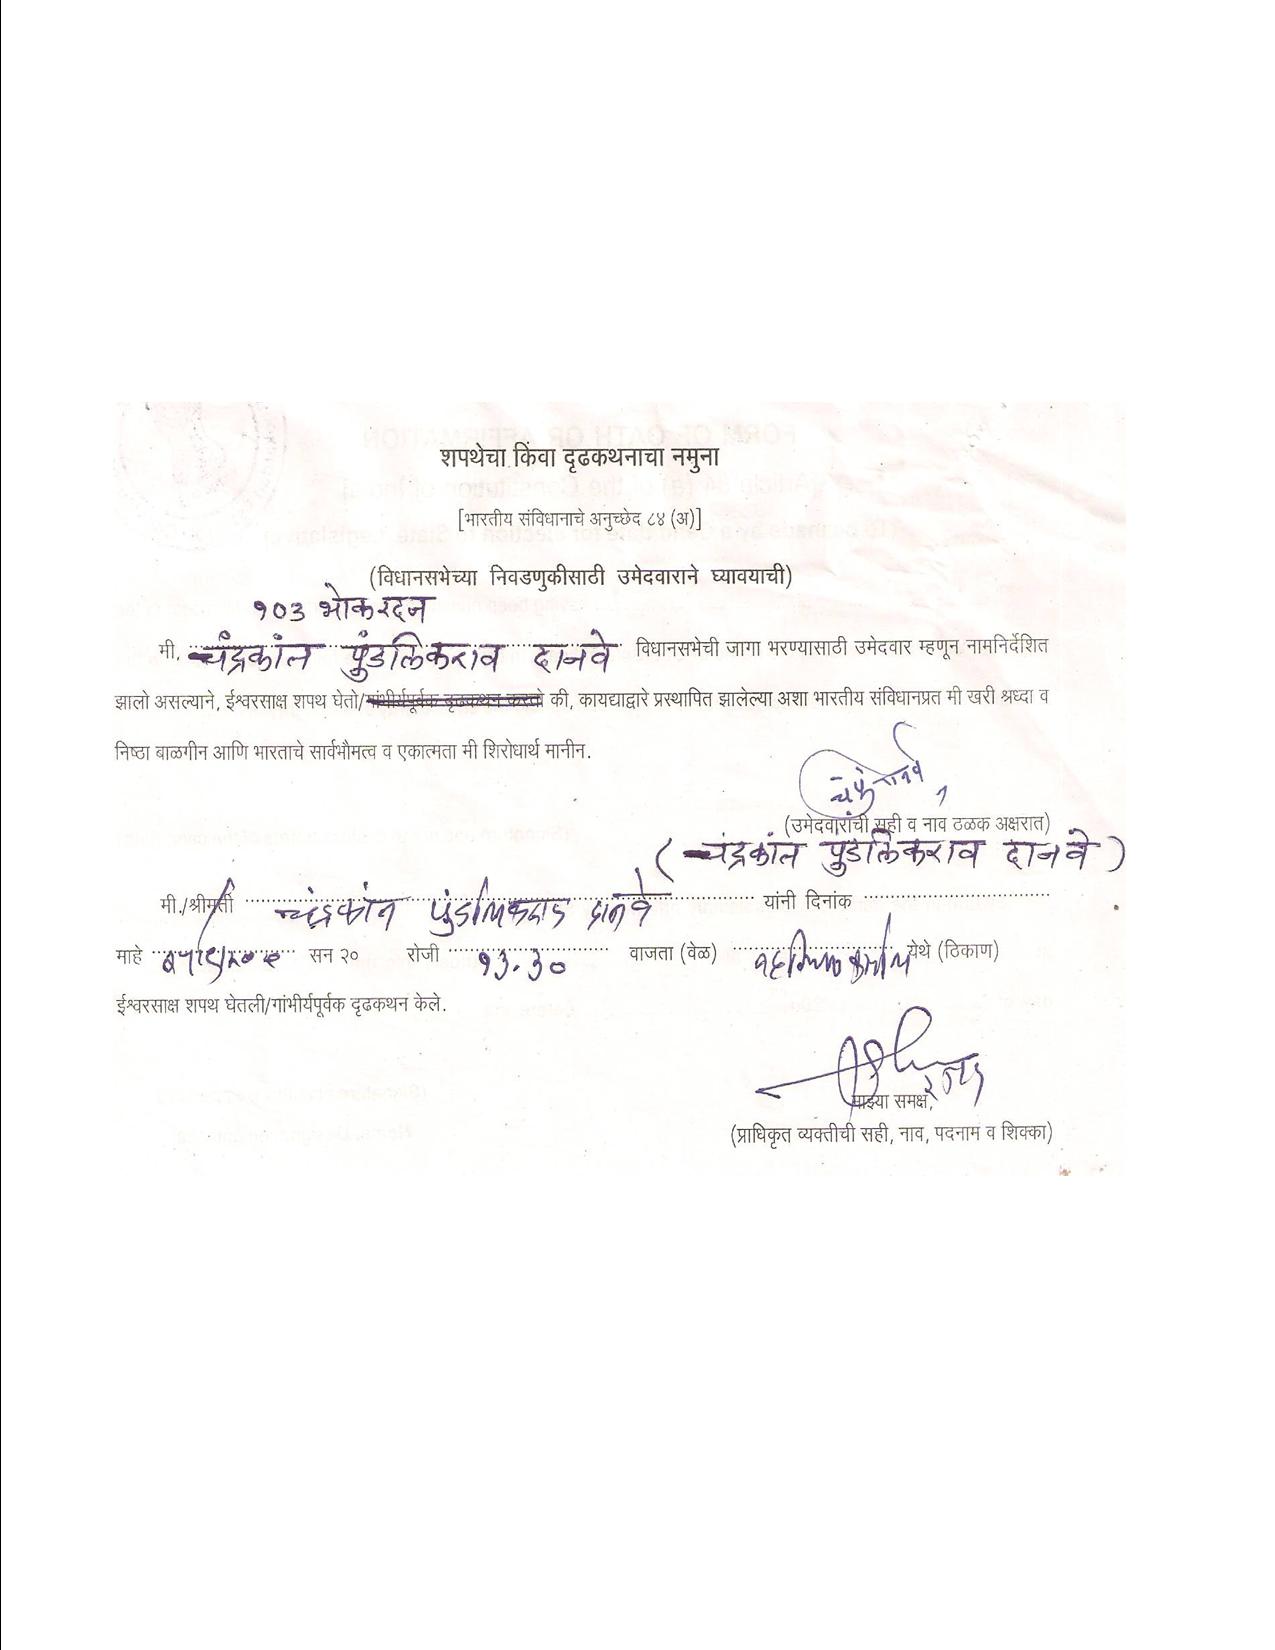 शपथेचा किंवा दृढकथनाचा नमुना
[भारतीय संविधानाचे अनुच्छेद ८४ (अ)]
(विधानसभेच्या निवडणुकीसाठी उमेदवाराने घ्यावयाची)
१०३ भोकरदन
मी, चंद्रकांत पुंडलिकराव दानवे विधानसभेची जागा भरण्यासाठी उमेदवार म्हणून नामनिर्देशित
झालो असल्याने, ईश्वरसाक्ष शपथ घेतो/गांभीर्यपूर्वक दृढकथन करतो की, कायद्याद्वारे प्रस्थापित झालेल्या अशा भारतीय संविधानाप्रत मी खरी श्रध्दा व
निष्ठा बाळगीन आणि भारताचे सार्वभौमत्व व एकात्मता मी शिरोधार्थ मानीन.
(उमेदवारांची सही व नाव ठळक अक्षरात)
(चंद्रकांत पुंडलिकराव दानवे)
मी./श्रीमती चंद्रकांत पुंडलिकराव दानवे यांनी दिनांक
माहे सन २० रोजी १३.३० वाजता (वेळ) येथे (ठिकाण)
ईश्वरसाक्ष शपथ घेतली/गांभीर्यपूर्वक दृढकथन केले.
माझ्या समक्ष,
(प्राधिकृत व्यक्तीची सही, नाव, पदनाम व शिक्का)